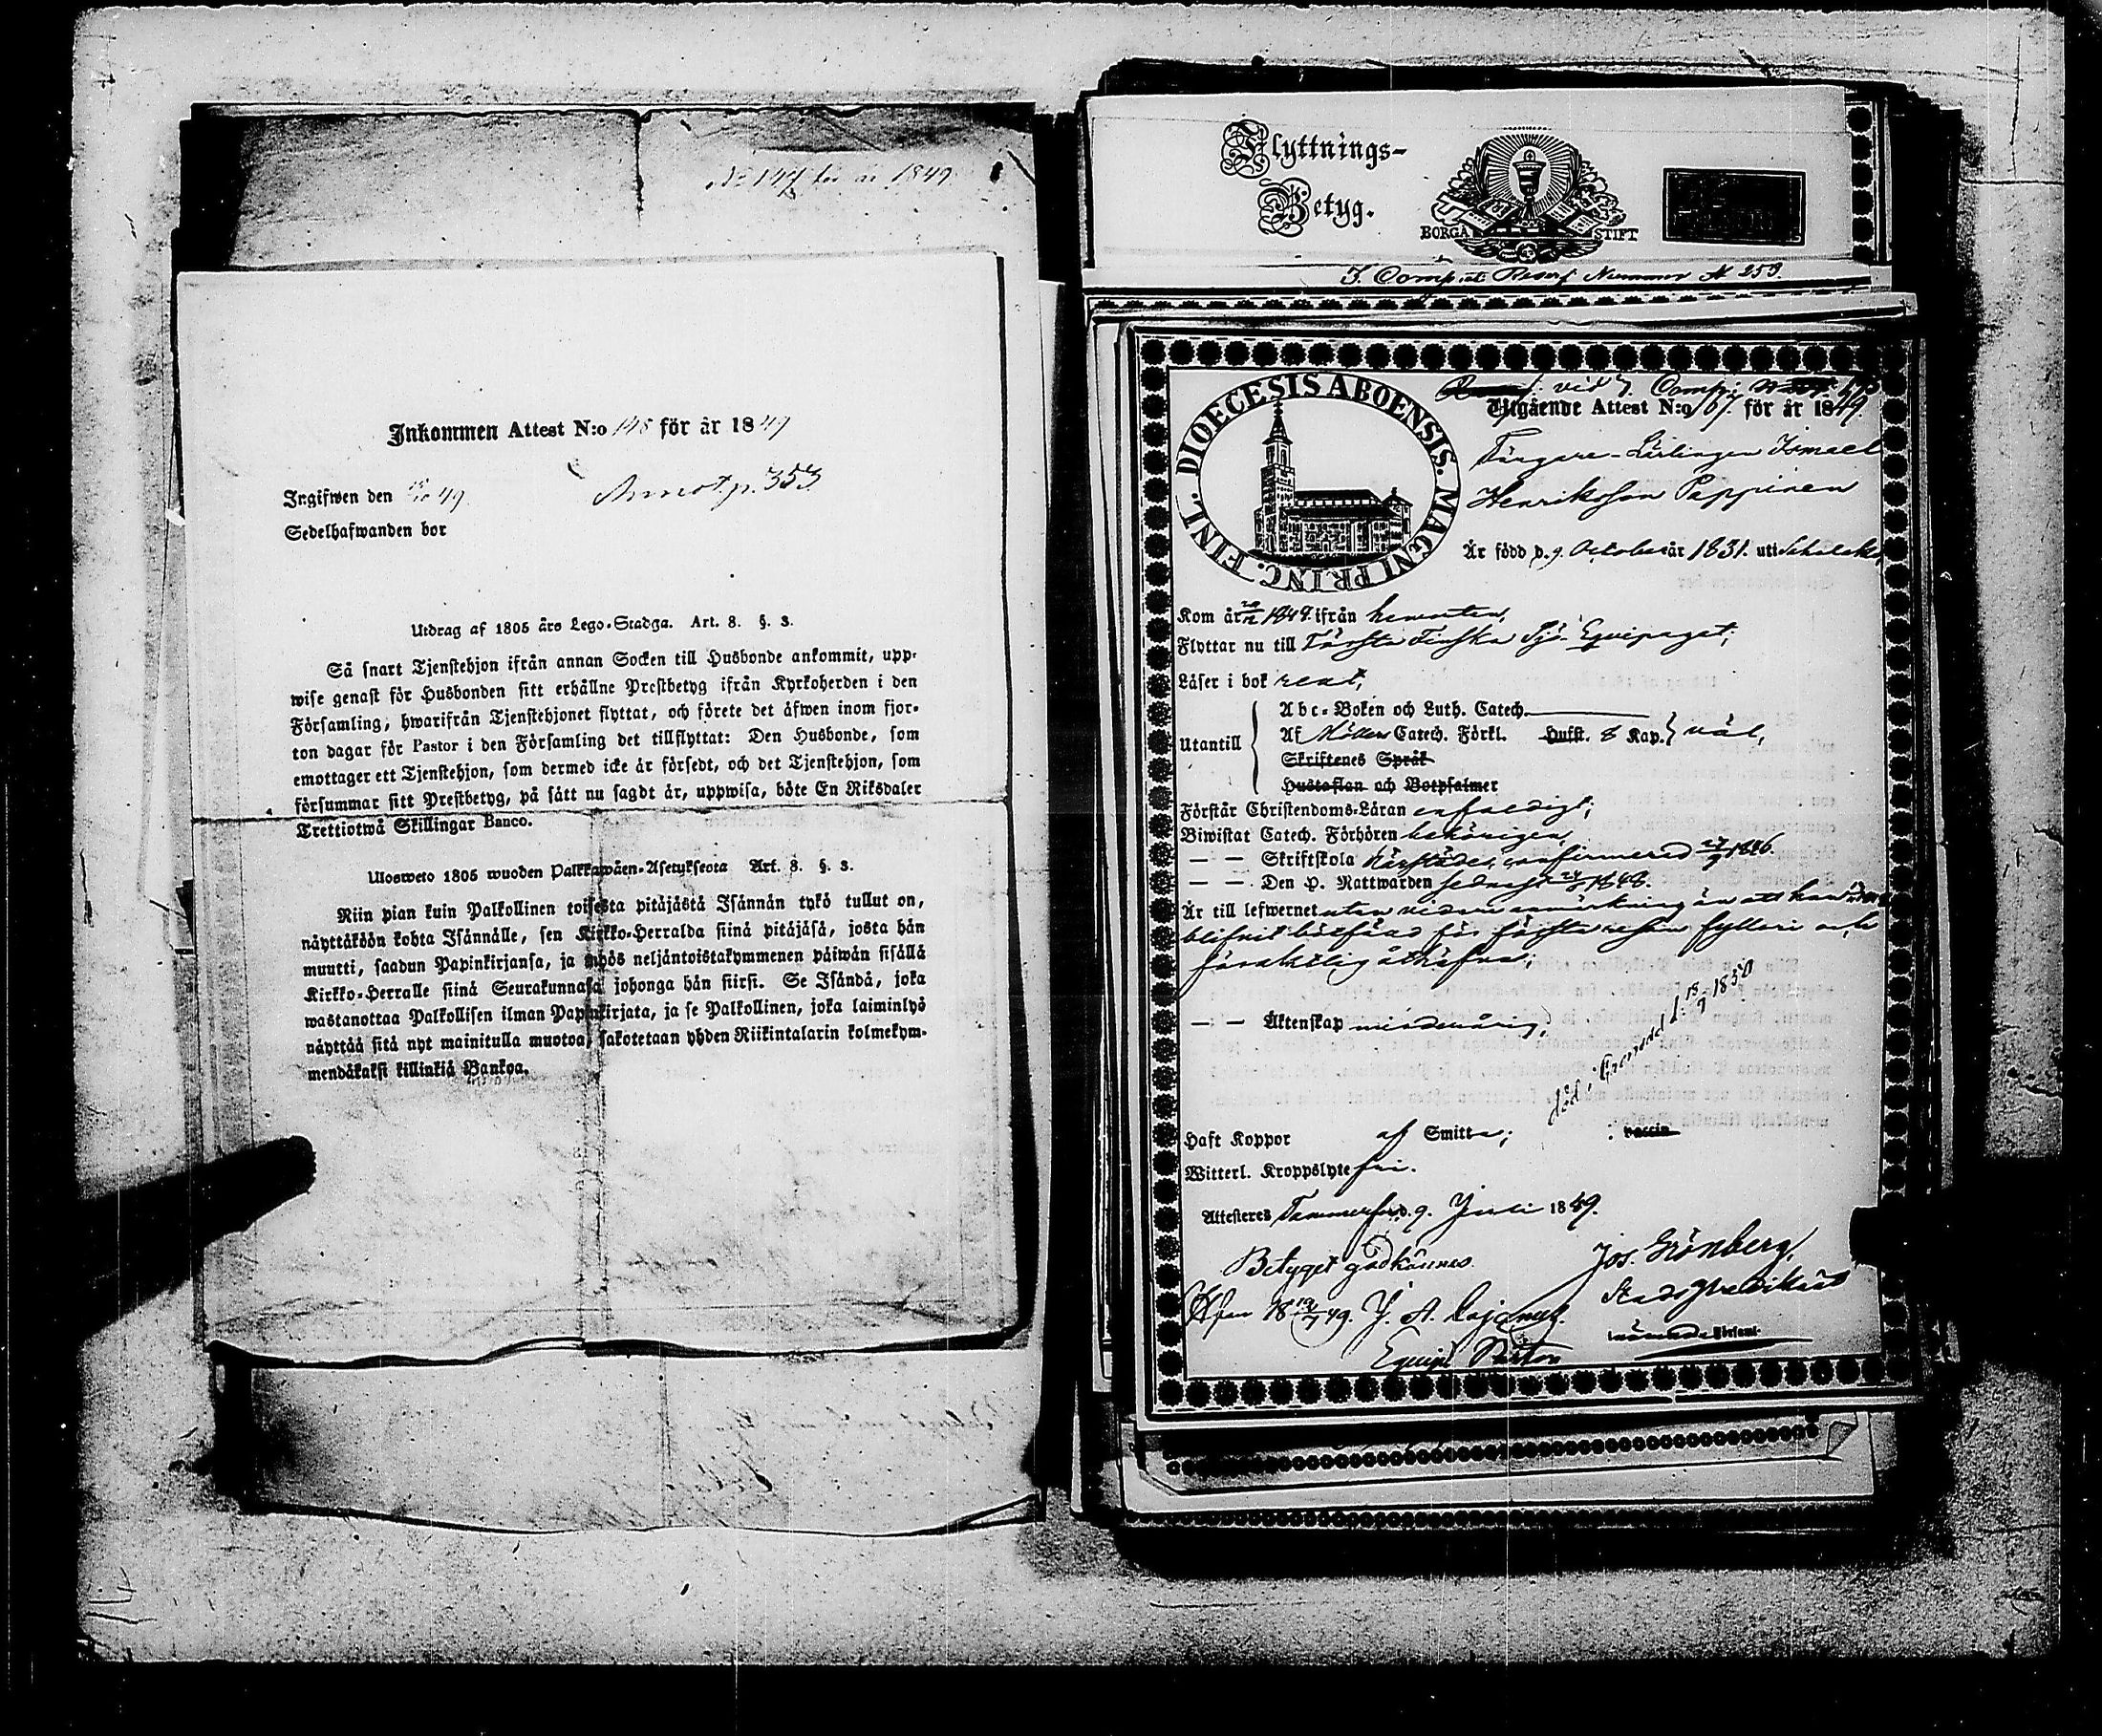 No 147 för år 1849
Inkommen Attest N:o 148 för år 1849
Ingifwen den 15/10 49.
Annot. p. 353
Sedelhafwanden bor
Utdrag af 1805 års Lego-Stadga. Art. 8. §. 3.
Så snart Tjenstehjon ifrån annan Socken till Husbonde ankommit, upp-
wise genast för Husbonden sitt erhållne Prestbetyg ifrån Kyrkoherden i den
Församling, hwarifrån Tjenstehjonet flyttat, och förete det äfwen inom fjor-
ton dagar för Pastor i den Församling det tillflyttat: Den Husbonde, som
emottager ett Tjenstehjon, som dermed icke är försedt, och det Tjenstehjon, som
försummar sitt Prestbetyg, på sätt nu sagdt är, uppwisa, böte En Riksdaler
Trettiotwå Skillingar Banco.
Ulosweto 1805 wuoden Palkkawäen-Asetuksesta Art. 8. §. 3.
Niin pian kuin Palkollinen toisesta pitäjästä Isännän tykö tullut on,
näyttäköön kohta Isännälle, sen Kirkko-Herralda siinä pitäjäsä, josta hän
muutti, saadun Papinkirjansa, ja myös neljäntoistakymmenen päiwän sisällä
Kirkko-Herralle siinä Seurakunnasa johonga hän siirsi. Se Isändä, joka
wastanottaa Palkollisen ilman Papinkirjata, ja se Palkollinen, joka laiminlyö
näyttää sitä nyt mainitulla muotoa, sakotetaan yhden Riikintalarin kolmekym-
mendäkaksi killinkiä Bankoa.
Flyttnings-
Betyg.
BORGÅ STIFT
7. Comp. Reserf Nummer No 259
DIOECESIS ABOENSIS. MAGNI PRINC. FINL.
vid 7. Comp.
Utgående Attest N:o 67. för år 1849.
Färgare-Lärlingen Ismael
Henriksson Pappinen
Är född d. 9 October år 1831. uti
Kom år 1849. ifrån hemorten,
Flyttar nu till Första Finska Sjö-Equipaget;
Läser i bok rent,
Utantill
Abc-Boken och Luth. Catech.
Af Möllers Catech. Förkl. Husst. 8 Kap. väl,
Skriftenes Språk
Hustaflan och Botpsalmer
Förstår Christendoms-Läran enfaldigt;
Biwistat Catech. Förhören behörigen,
— — Skriftskola härstädes, confirmerad 27/9 1846.
— — Den H. Nattwarden sednast 24/6 1848.
Är till lefwernet utan vidare anmärkning än att han
blifvit bötfäld för första resan fylleri och
föraktlig åthäfva;
— — Äktenskap minderårig,
död i Cronstadt d. 13/7 1850
Haft Koppor af Smitta; vaccin
Witterl. Kroppslyte fri.
Attesteras Tammerfors d. 9. Juli 1849.
Betyget godkännes.
Hfors 18 19/7 49.
Equip. Pastor
Jos. Grönberg,
Stadspredikant